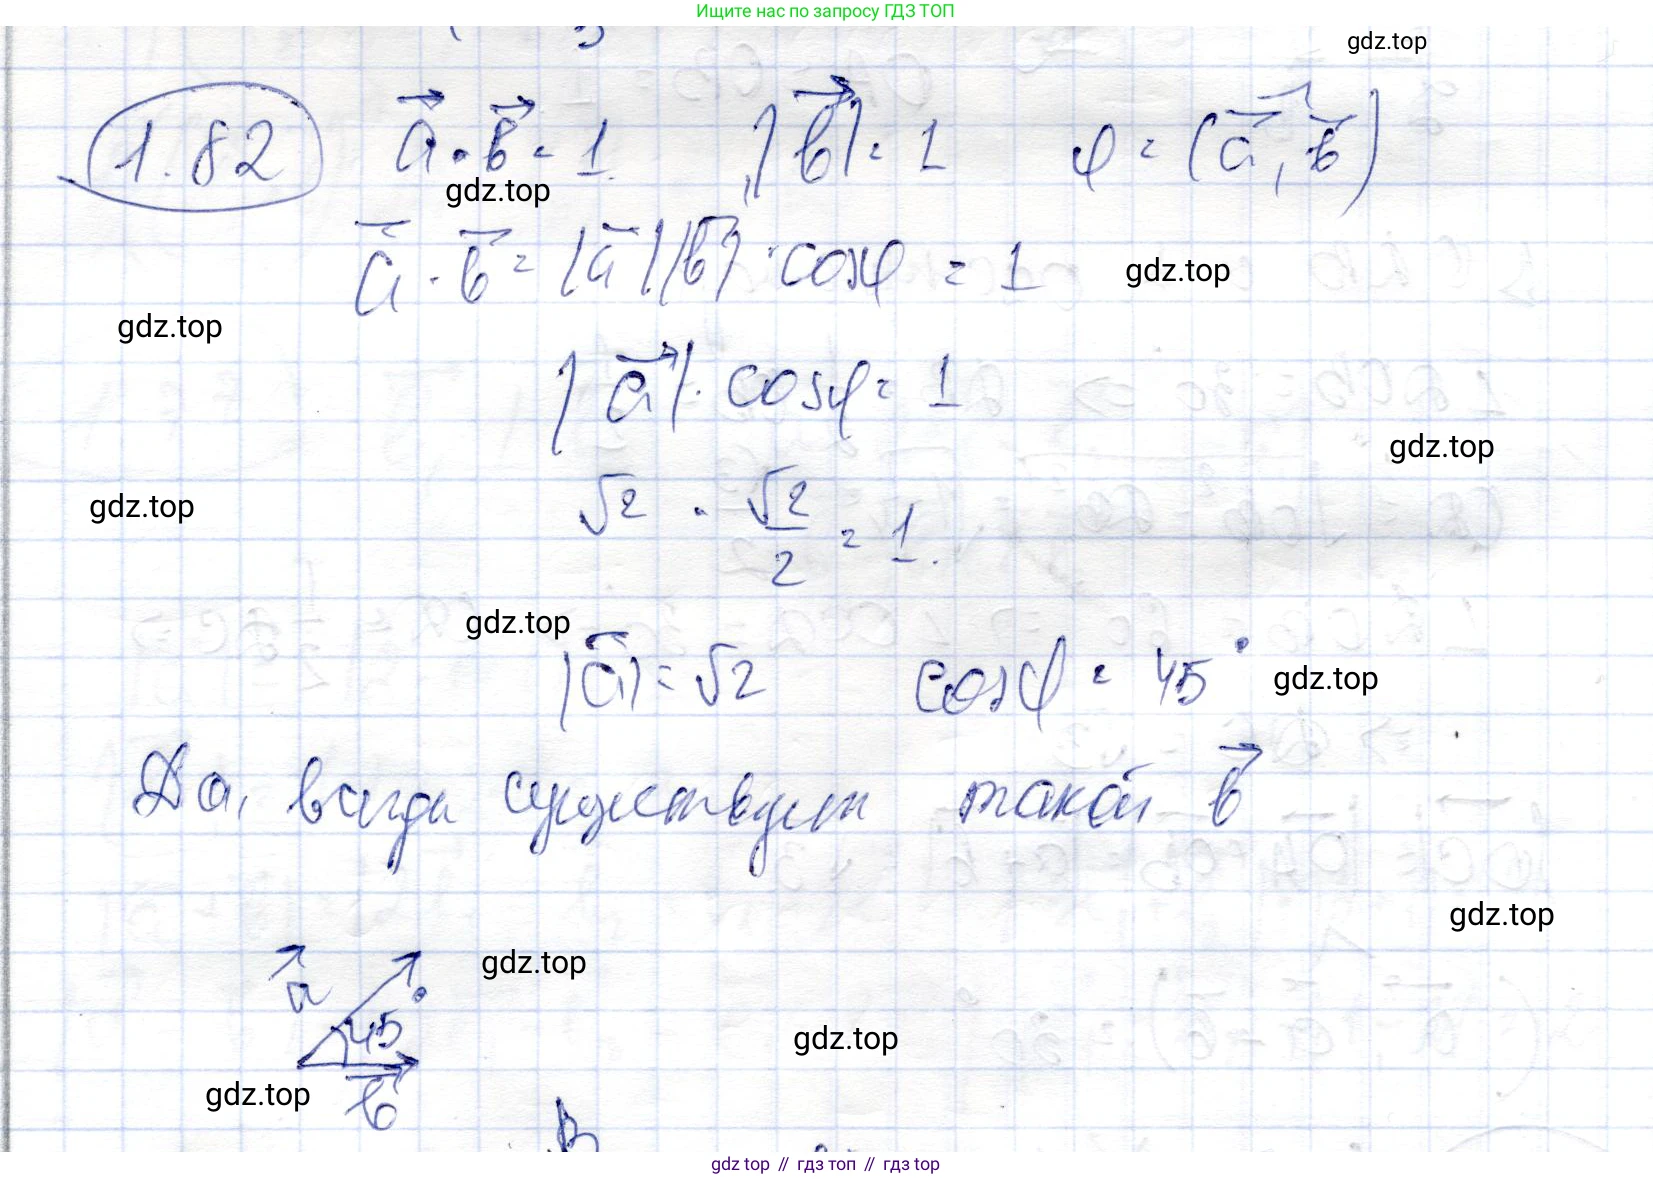 Ищите нас по запросу ГДЗ ТОП
gdz.top
1.82 a⃗ · b⃗ = 1. |b⃗| = 1 φ = (a⃗, b⃗)
gdz.top
a⃗ · b⃗ = |a⃗| |b⃗| · cosφ = 1
gdz.top
gdz.top
|a⃗| · cosφ = 1
gdz.top
√2 · √2/2 = 1.
gdz.top
gdz.top
|a⃗| = √2 cosφ = 45°
gdz.top
Да, всегда существует такой b⃗
gdz.top
a⃗
gdz.top
45°
gdz.top
b⃗
gdz.top
gdz top // гдз топ // гдз top